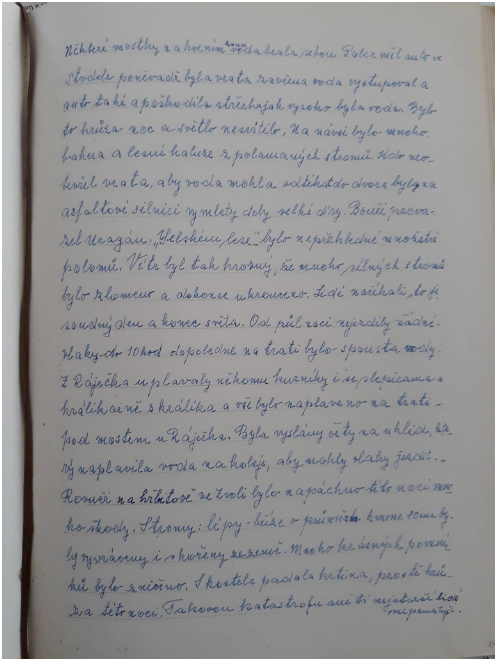 Některé mostky za horním koncem voda brala sebou. Palce měl auto ve
stodole poněvadž byla vrata zavřena voda vystupoval a
auto také a poškodila střechu jak vysoko byla voda. Byl
to hrůza noc a světlo nesvítilo, na návsi bylo mnoho
bahna a lesní haluze z polamaných stromů. Kdo neo-
tevřel vrata, aby voda mohla odtékst do dvora byly na
asfaltové silnici vymlety doly velké díry. Bouři prová-
zel Uragán. V "Zelském lese" bylo nepřehledné množství
polomů. Vítr byl tak hrozný, že mnoho silných stromů
bylo zlomeno a dokonce ukrouceno. Lidé naříkali, to je
soudný den a konec světa. Od půl noci nejezdily žádné
vlaky do 10 hod dopoledne na trati bylo spousta vody.
Z Ráječka uplavaly někomu kurníky i se slepicama a
králikárně s králíka a vše bylo naplaveno na trati
pod mostem u Ráječka. Byla vyslány čety na uhlid, kte-
rý naplavila voda na koleje, aby mohly vlaky jezdit.
Rovněž na hřbitově ve Zvoli bylo napácháno této noci mno-
ho škody. Stromy: lípy - bříze o průměru kmene 50cm by-
ly vyvráceny i s kořeny ze země. Mnoho krásných pomní-
ků bylo zničeno. S kostela padala krtina, prostě hrů-
za této noci. Takovou katastrofu ani ti nejstarší lidé
nepamatují.